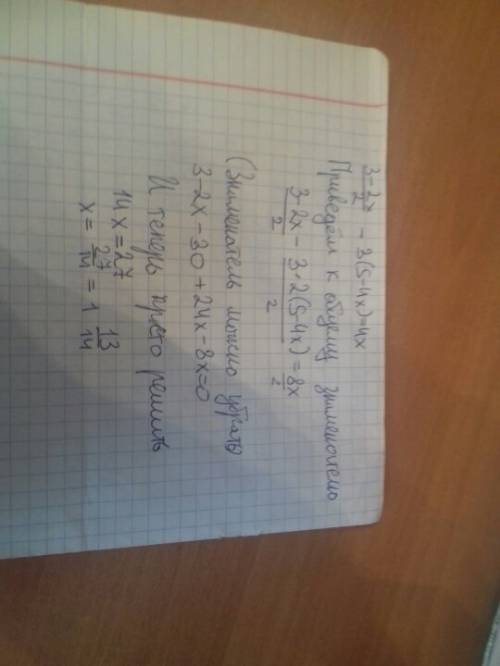 (3-2x)/2 - 3(5-4x)=4x
Приведём к общему знаменателю
(3-2x)/2 - (3·2(5-4x))/2 = 8x/2
(Знаменатель можно убрать
3-2x-30+24x-8x=0
И теперь просто решить
14x=27
x= 27/14 = 1 13/14